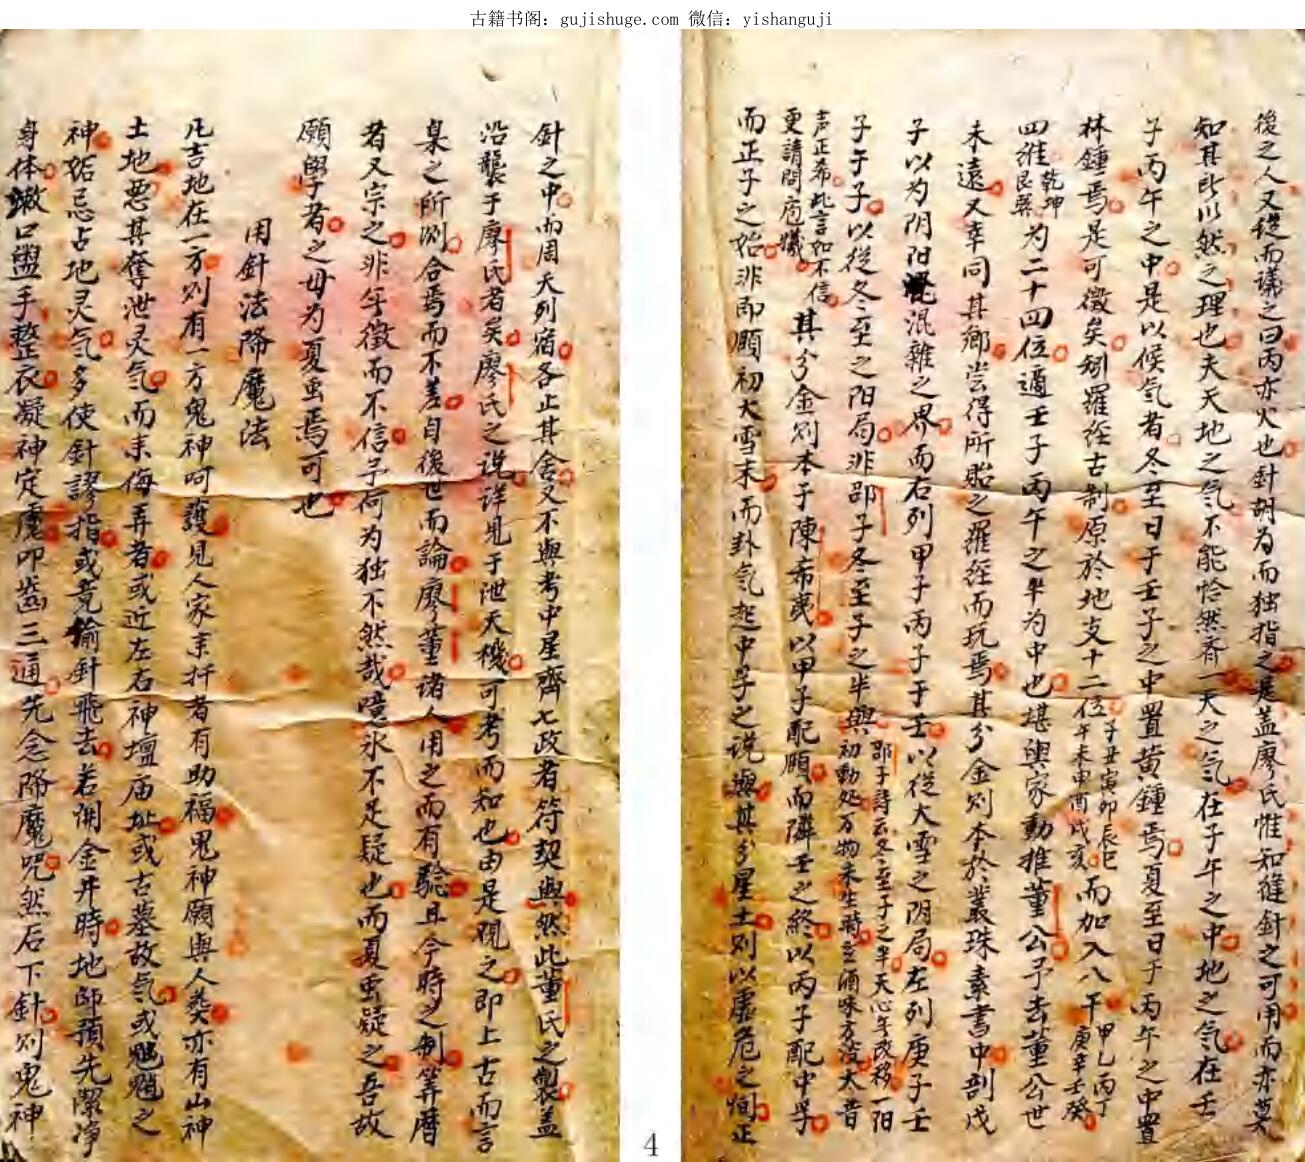 古籍书阁：gujishuge.com 微信：yishanguji
後之人又從而議之曰丙亦火也針胡为而独指之是盖廖氏惟知縫針之可用而亦莫
知其所以然之理也夫天地之氣不能恰然吝一天之氣在子午之中地之氣在壬
子丙午之中是以候氣者冬至日于壬子之中置黄鍾焉夏至日于丙午之中置
林鍾焉是可徵矣羅经古制原於地支十二位子丑寅卯辰巳午未申酉戌亥而加入八干甲乙丙丁庚辛壬癸
四維乾坤艮巽为二十四位適壬子丙午之半为中也堪輿家動推董公予去董公世
未遠又幸同其鄉尝得所貽之羅经而玩焉其分金则本於叢珠素書中剖戊
子以为阴阳混雜之界而右列甲子丙子于壬以從大雪之阴局左列庚子壬
子于子以從冬至之阳局非邵子冬至子之半與邵子詩云冬至子之半天心无改移一阳初動处万物未生時玄酒味方淡大音
声正希此言如不信更請問庖犧其分金则本于陳希夷以甲子配頤而隣壬之終以丙子配中孚
而正子之始非即頤初大雪末而卦氣起中孚之说與其分星土则以虚危之恒正
針之中而周天列宿各止其舍又不與考中星齊七政者符契與然此董氏之製盖
沿襲于廖氏者矣廖氏之说详見于泄天機可考而知也由是观之即上古而言
臬之所测合焉而不差自後世而論廖董诸人用之而有驗且今時之制筭曆
者又宗之非午徵而不信予何为独不然哉噫氷不足疑也而夏虫疑之吾故
願學者之毋为夏虫焉可也
用針法降魔法
凡吉地在一方则有一方鬼神呵護見人家来扦者有助福鬼神願與人葵亦有山神
土地恶其奪泄灵氣而来侮弄者或近左右神壇庙址或古墓故氣或魍魎之
神妬忌占地灵氣多使針謬指或竟偷針飛去若開金井時地師預先潔净
身体漱口盥手整衣凝神定慮叩齒三通先念降魔咒然后下針则鬼神
4